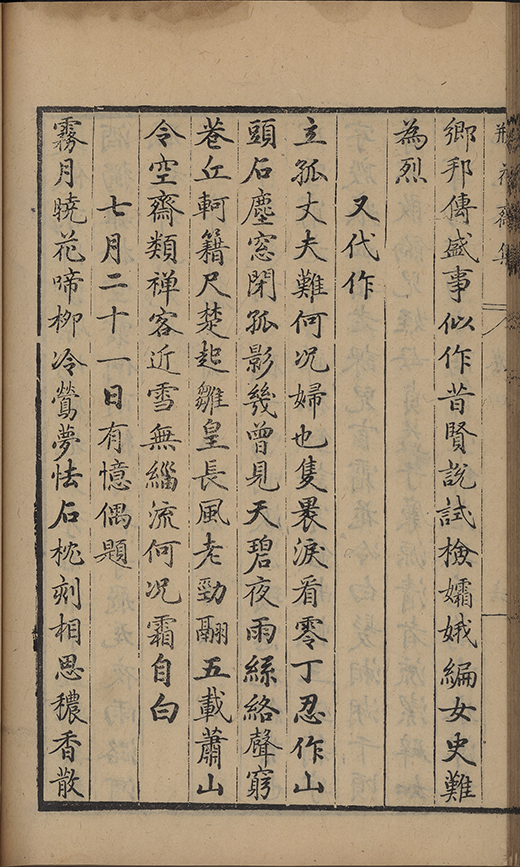 鄉邦傳盛事似作昔賢說試檢孀娥編女史難
為烈
又代作
立孤丈夫難何况婦也隻畏淚看零丁忍作山
頭石塵窓閉孤影幾曾見天碧夜雨絲絡聲窮
巷丘軻籍尺楚起雛皇長風老勁翮五載蕭山
令空齋類禅客近雪無緇流何况霜自白
七月二十一日有憶偶題
霧月曉花啼柳冷鶯夢怯石枕刻相思穠香散